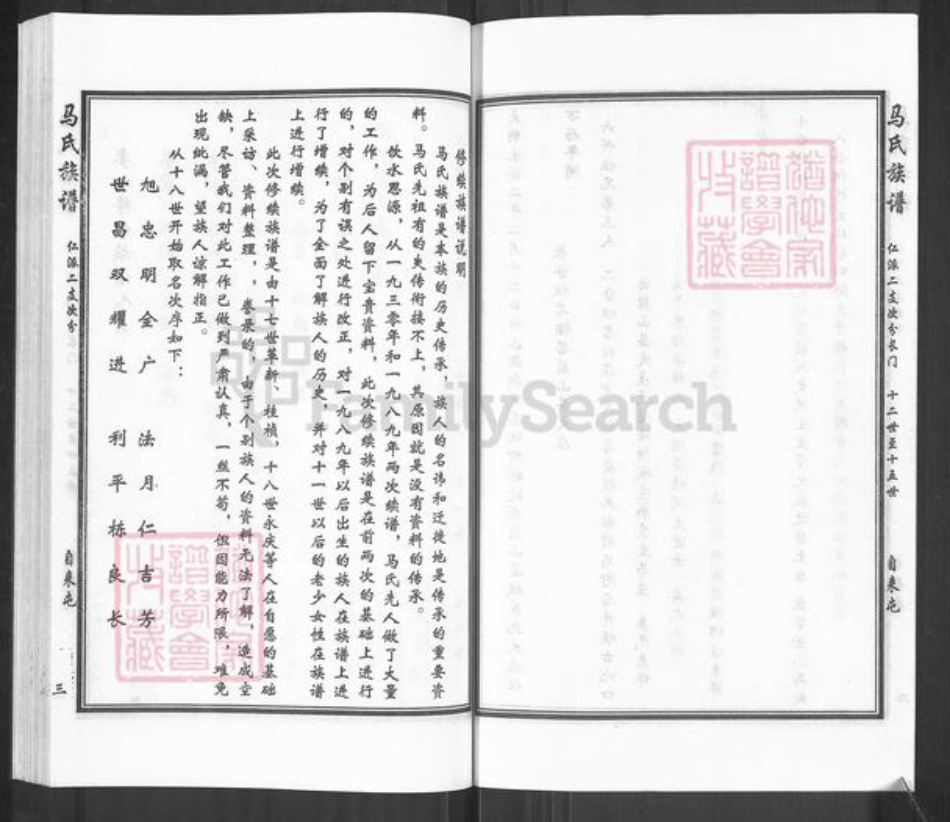 马氏族谱 仁派二支次分长门 十二世至十五世 自来屯
修续族谱说明
马氏族谱是本族的历史传承，族人的名讳和迁徙地是传承的重要资
料。马氏先祖有的史传衔接不上，其原因就是没有资料的传承。
饮水思源，从一九三零年和一九八九年两次续谱，马氏先人做了大量
的工作，为后人留下宝贵资料，此次修续族谱是在前两次的基础上进行
的，对个别有误之处进行改正，对一九八九年以后出生的族人在族谱上进
行了增续，为了全面了解族人的历史，并对十一世以后的老少女性在族谱
上进行增续。
此次修续族谱是由十七世革新、桂桢，十八世永庆等人在自愿的基础
上采访、资料整理，誊录的，由于个别族人的资料无法了解，造成空
缺，尽管我们对此工作已做到严肃认真，一丝不苟，但因能力所限，难免
出现纰漏，望族人谅解指正。
从十八世开始取名次序如下：
旭 忠 明 全 广 法 月 仁 吉 芳
世 昌 双 耀 进 利 平 栋 良 长
马氏族谱 仁派二支次分长门 自来屯 三
猶他家
譜學會
收藏
猶他家
譜學會
收藏
FamilySearch